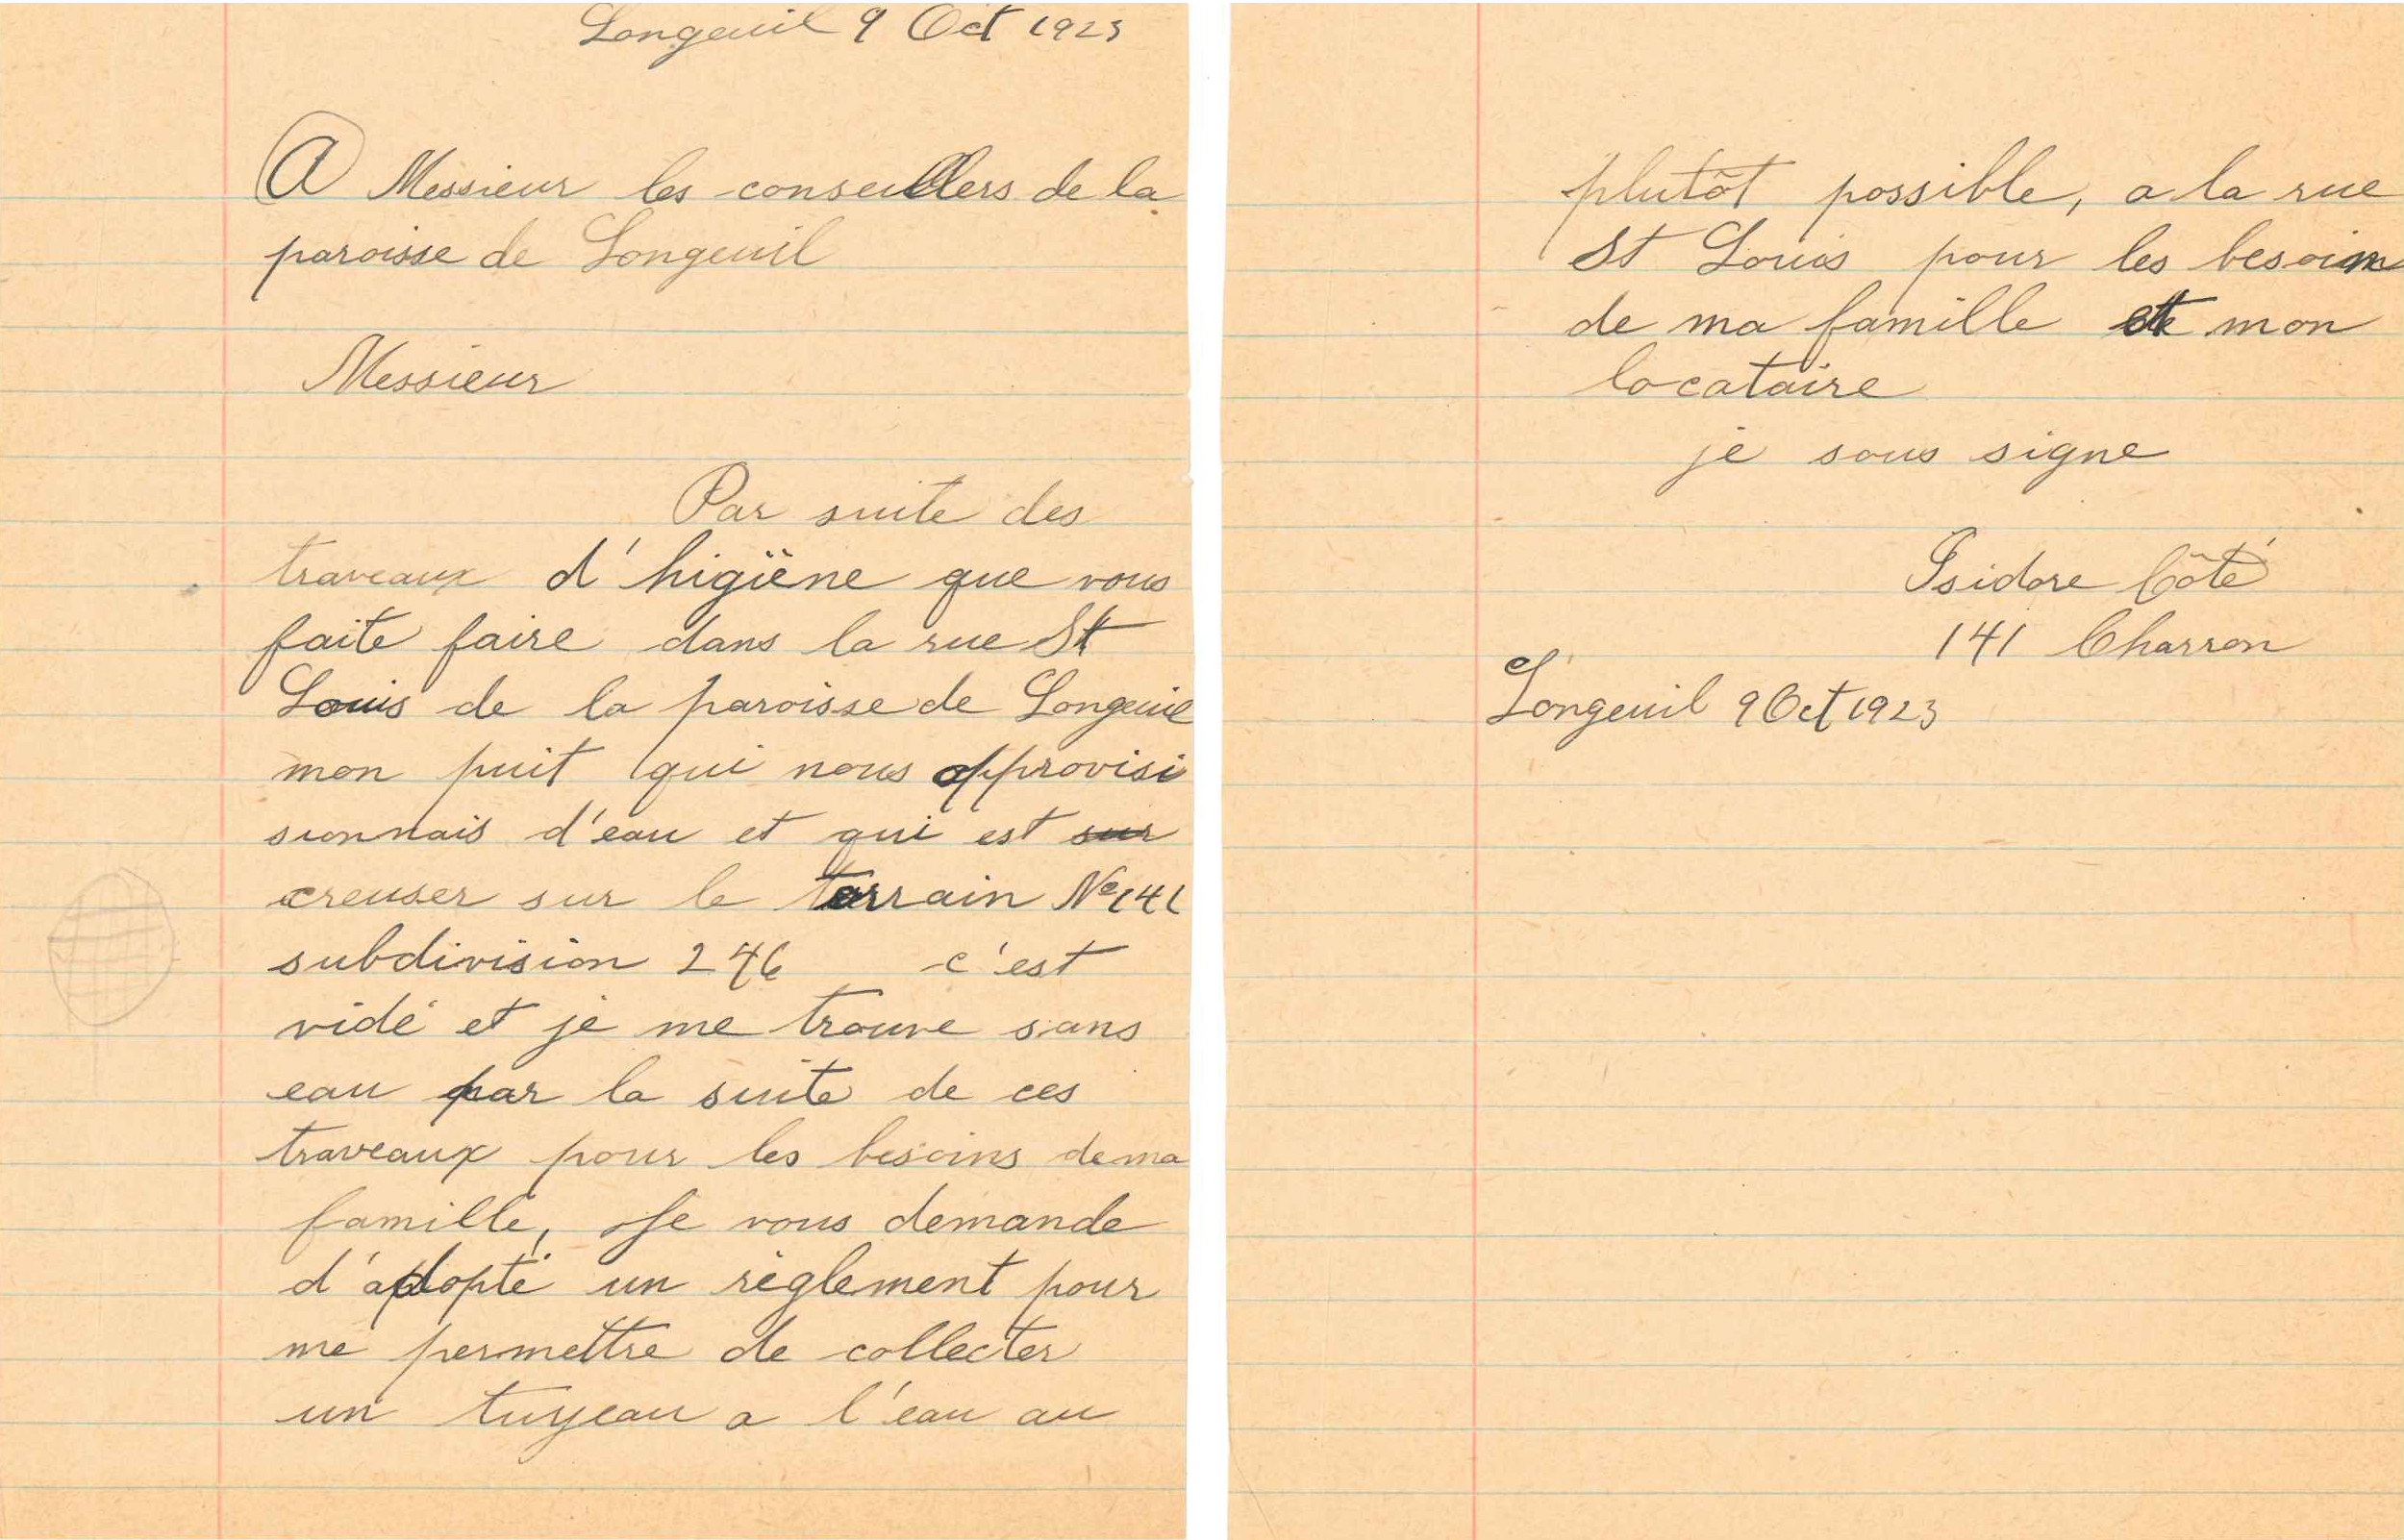 Longeuil 9 Oct 1923
A Messieur les conseillers de la
paroisse de Longeuil
Messieur
Par suite des
traveaux d'higiène que vous
faite faire dans la rue St
Louis de la paroisse de Longeuil
mon puit qui nous approvisi
sionnais d'eau et qui est sur
creuser sur le terrain No 141
subdivision 246 c'est
vidé et je me trouve sans
eau par la suite de ces
traveaux pour les besoins de ma
famille, Je vous demande
d'adopté un règlement pour
me permettre de collecter
un tuyeau a l'eau au
plutôt possible, a la rue
St Louis pour les besoin
de ma famille et mon
locataire
je sous signe
Isidore Côté
141 Charron
Longeuil 9 Oct 1923